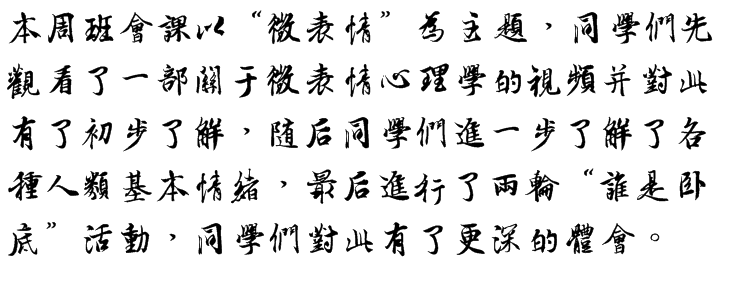 本周班會課以“微表情”為主題，同學們先
觀看了一部關于微表情心理學的視頻并對此
有了初步了解，随后同學們進一步了解了各
種人類基本情緒，最后進行了兩輪“誰是卧
底”活動，同學們對此有了更深的體會。